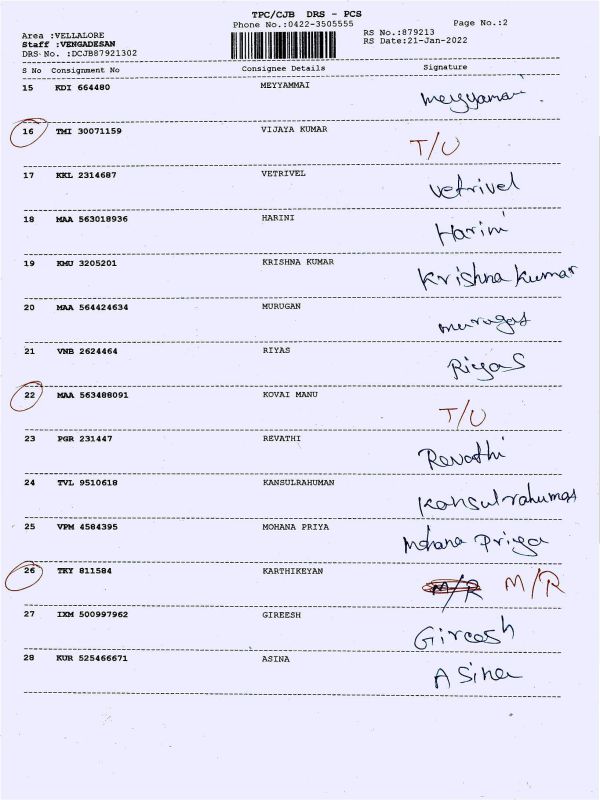 TPC/CJB DRS - PCS
Phone No.:0422-3505555 Page No.:2
Area :VELLALORE RS No.:879213
Staff :VENGADESAN RS Date:21-Jan-2022
DRS No. :DCJB87921302
S No Consignment No Consignee Details Signature
15 KDI 664480 MEYYAMMAI Meyyamai
16 TMI 30071159 VIJAYA KUMAR T/U
17 KKL 2314687 VETRIVEL Vetrivel
18 MAA 563018936 HARINI Harini
19 KMU 3205201 KRISHNA KUMAR Krishna kumar
20 MAA 564424634 MURUGAN murugas
21 VNB 2624464 RIYAS Riyas
22 MAA 563488091 KOVAI MANU T/U
23 PGR 231447 REVATHI Revathi
24 TVL 9510618 KANSULRAHUMAN Kansulrahumas
25 VPM 4584395 MOHANA PRIYA Mohana Priya
26 TKY 811584 KARTHIKEYAN M/R M/R
27 IXM 500997962 GIREESH Gireesh
28 KUR 525466671 ASINA A Sina